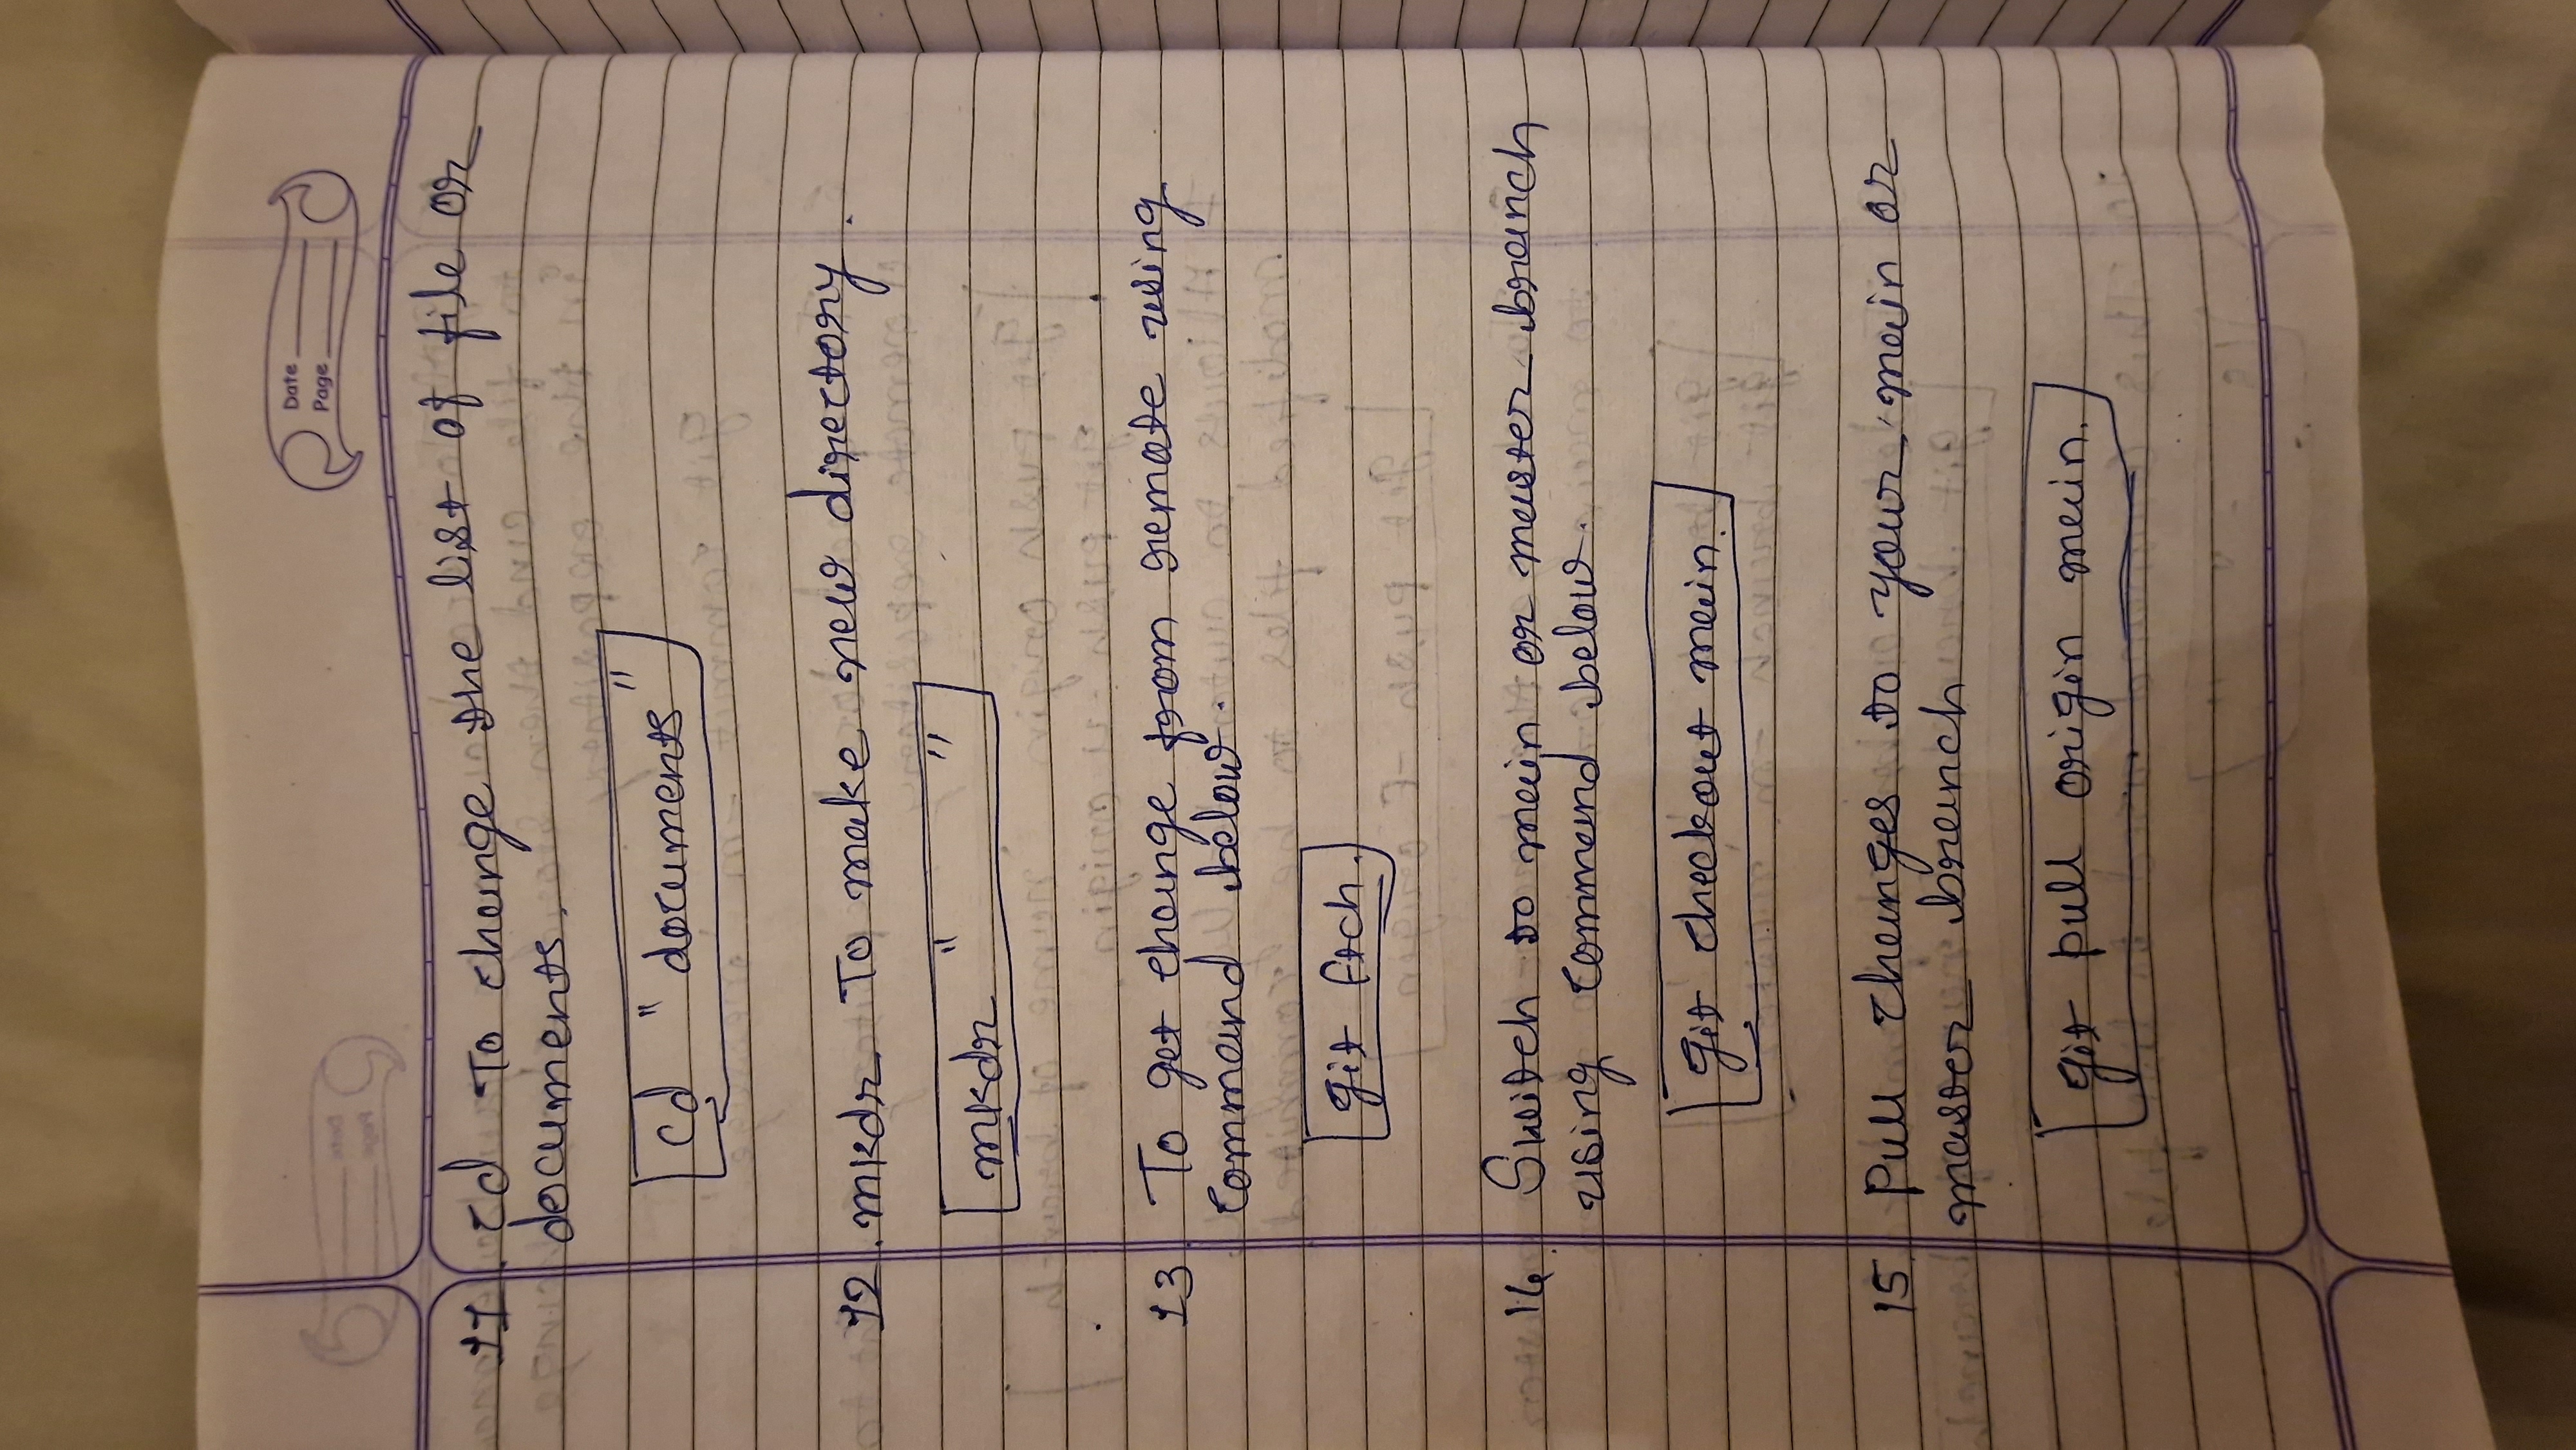 Date
Page
11. cd To change the list of file or
documents.
cd " documents "
12. mkdr To make new directory.
mkdr " "
13. To get change from remote using
Command below.
git ftch.
14. Switch to main or master branch
using Command below.
git checkout main.
15 Pull changes to your main or
master branch
git pull origin main.